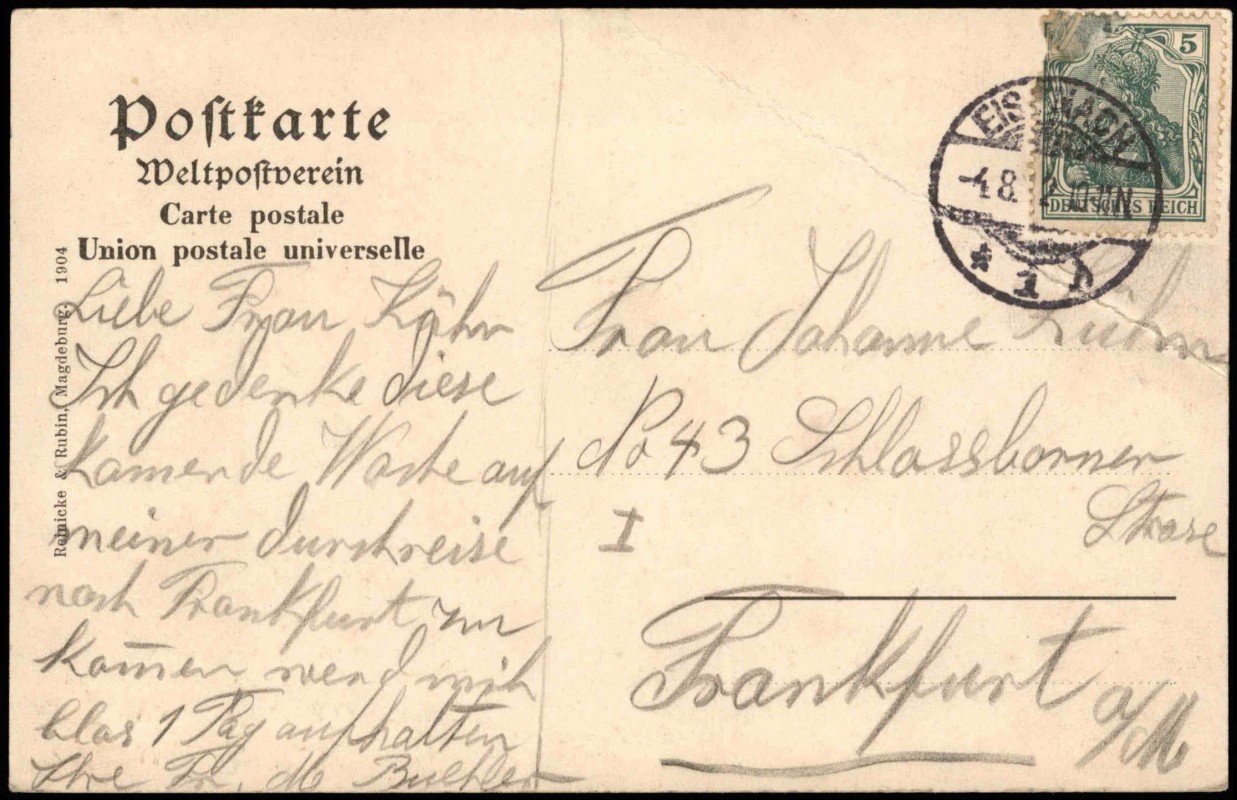 Postkarte
Weltpostverein
Carte postale
Union postale universelle
Reinicke & Rubin, Magdeburg, 1904
Liebe Frau Kühn
Ich gedenke diese
kamende Woche auf
meiner durchreise
nach Frankfurt zu
kom̅en werd mich
blos 1 Tag aufhalten
Ihre Fr. M Buehler
5
DEUTSCHES REICH
EISENACH
-4.8. 10-11N
* 1 b
Frau Johanne Kühn
No 43 Schlossborner
Strase
I
Frankfurt
a/M